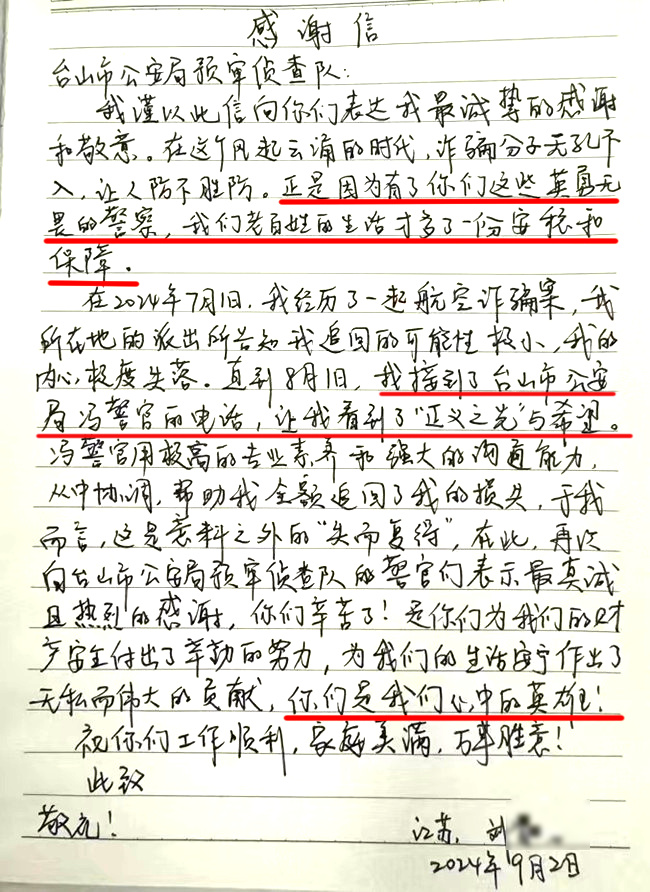 感谢信
台山市公安局预审侦查队:
我谨以此信向你们表达我最诚挚的感谢
和敬意。在这个风起云涌的时代,诈骗分子无孔不
入,让人防不胜防。正是因为有了你们这些英勇无
畏的警察,我们老百姓的生活才多了一份安稳和
保障。
在2024年7月1日,我经历了一起航空诈骗案,我
所在地的派出所告知我追回的可能性极小,我的
内心极度失落。直到8月1日,我接到了台山市公安
局冯警官的电话,让我看到了"正义之光"与希望。
冯警官用极高的专业素养和强大的沟通能力,
从中协调,帮助我全额追回了我的损失,于我
而言,这是意料之外的"失而复得",在此,再次
向台山市公安局预审侦查队的警官们表示最真诚
且热烈的感谢,你们辛苦了!是你们为我们的财
产安全付出了辛勤的努力,为我们的生活安宁作出了
无私而伟大的贡献,你们是我们心中的英雄!
祝你们工作顺利,家庭美满,万事胜意!
此致
敬礼!
江苏,刘
2024年9月2日